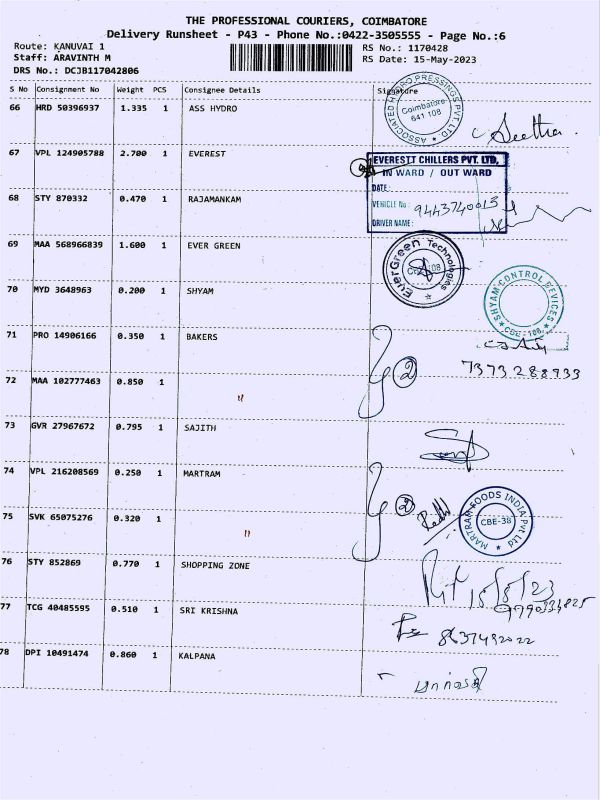 THE PROFESSIONAL COURIERS, COIMBATORE
Delivery Runsheet - P43 - Phone No.:0422-3505555 - Page No.:6
Route: KANUVAI 1 RS No.: 1170428
Staff: ARAVINTH M RS Date: 15-May-2023
DRS No.: DCJB117042806
S No Consignment No Weight PCS Consignee Details Signature
66 HRD 50396937 1.335 1 ASS HYDRO
ASSOCIATED HYDRO PRESSINGS PVT. LTD
Coimbatore
641 108
Seetha
67 VPL 124905788 2.700 1 EVEREST
EVERESTT CHILLERS PVT. LTD,
IN WARD / OUT WARD
DATE:
68 STY 870332 0.470 1 RAJAMANKAM
VEHICLE No: 9443740013
DRIVER NAME:
69 MAA 568966839 1.600 1 EVER GREEN
EverGreen Technologies
70 MYD 3648963 0.200 1 SHYAM
SHYAM CONTROL SEVICES
CBE-108
71 PRO 14906166 0.350 1 BAKERS
7373288933
72 MAA 102777463 0.850 1 "
2
73 GVR 27967672 0.795 1 SAJITH
74 VPL 216208569 0.250 1 MARTRAM
2
MARTRAM FOODS INDIA Pvt Ltd
CBE-38
75 SVK 65075276 0.320 1 "
76 STY 852869 0.770 1 SHOPPING ZONE
77 TCG 40485595 0.510 1 SRI KRISHNA
8637492022
78 DPI 10491474 0.860 1 KALPANA